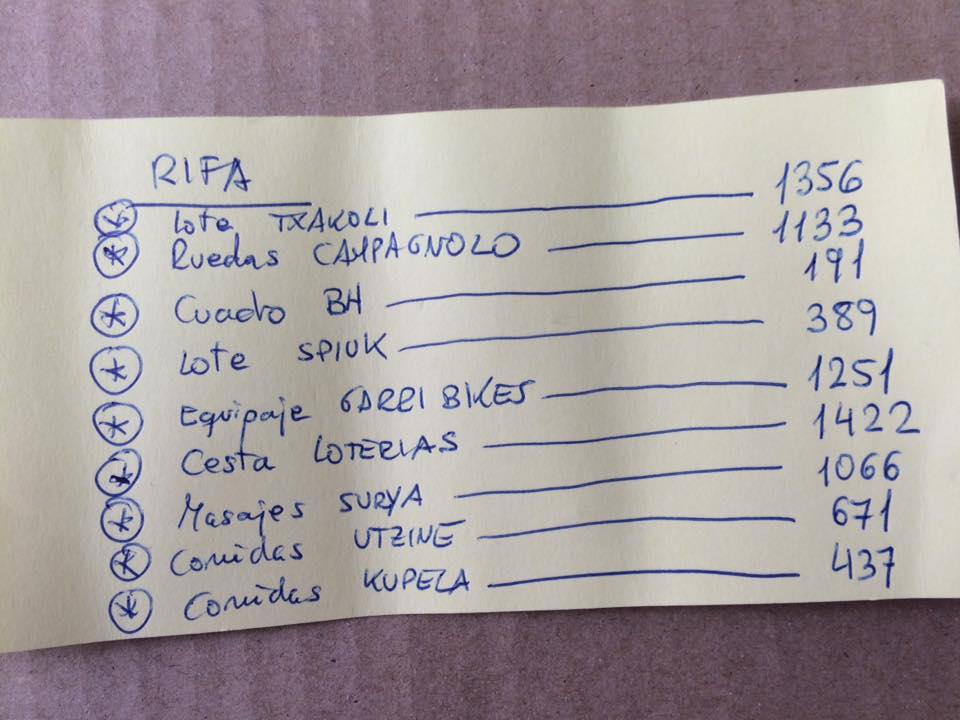 RIFA
Lote TXAKOLI 1356
Ruedas CAMPAGNOLO 1133
Cuadro BH 191
Lote SPIUK 389
Equipaje GARRI BIKES 1251
Cesta LOTERIAS 1422
Masajes SURYA 1066
Comidas UTZINE 671
Comidas KUPELA 437